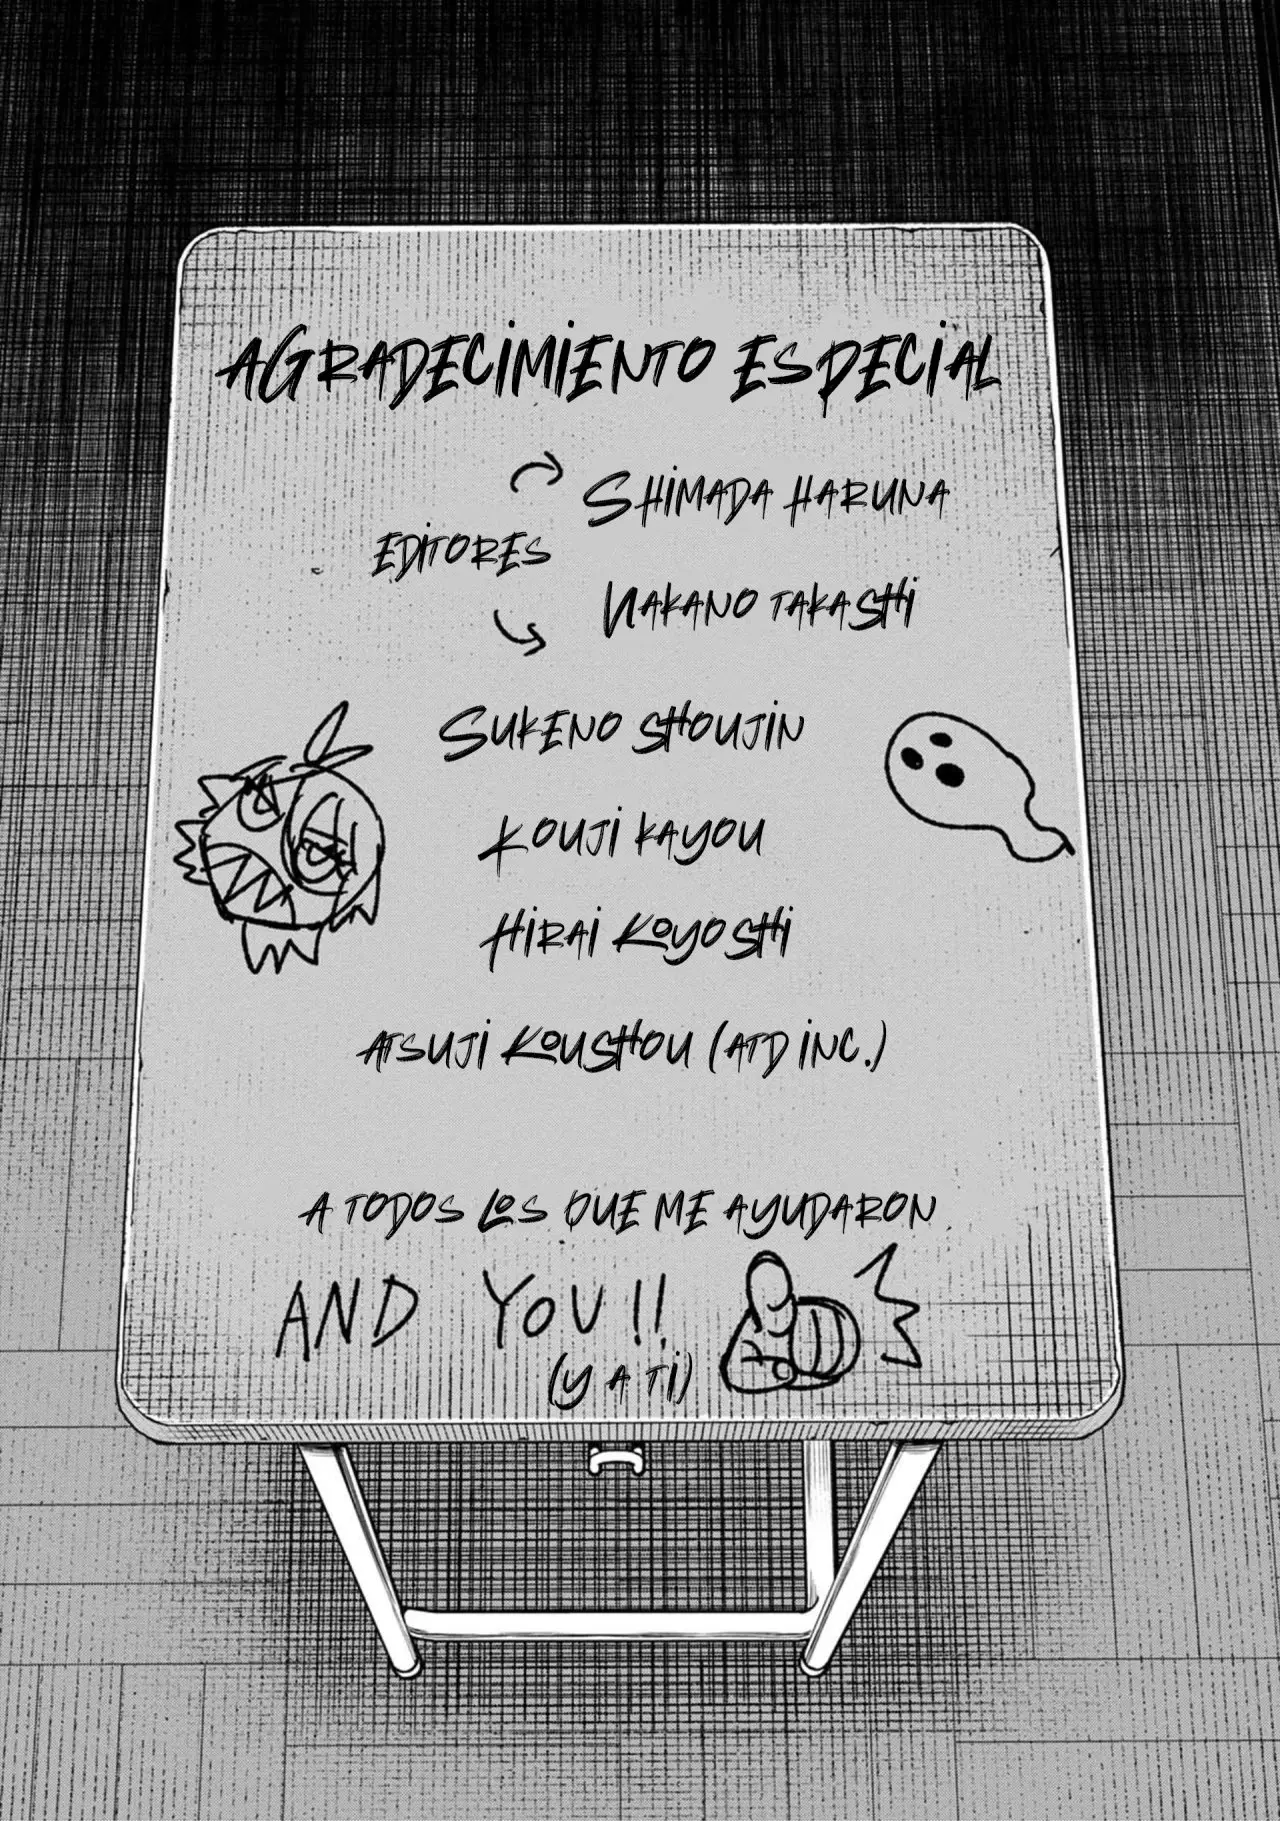 AGRADECIMIENTO ESPECIAL
EDITORES
SHIMADA HARUNA
NAKANO TAKASHI
SUKENO SHOUJIN
KOUJI KAYOU
HIRAI KOYOSHI
ATSUJI KOUSHOU (ATD INC.)
A TODOS LOS QUE ME AYUDARON
AND YOU!!
(Y A TI)